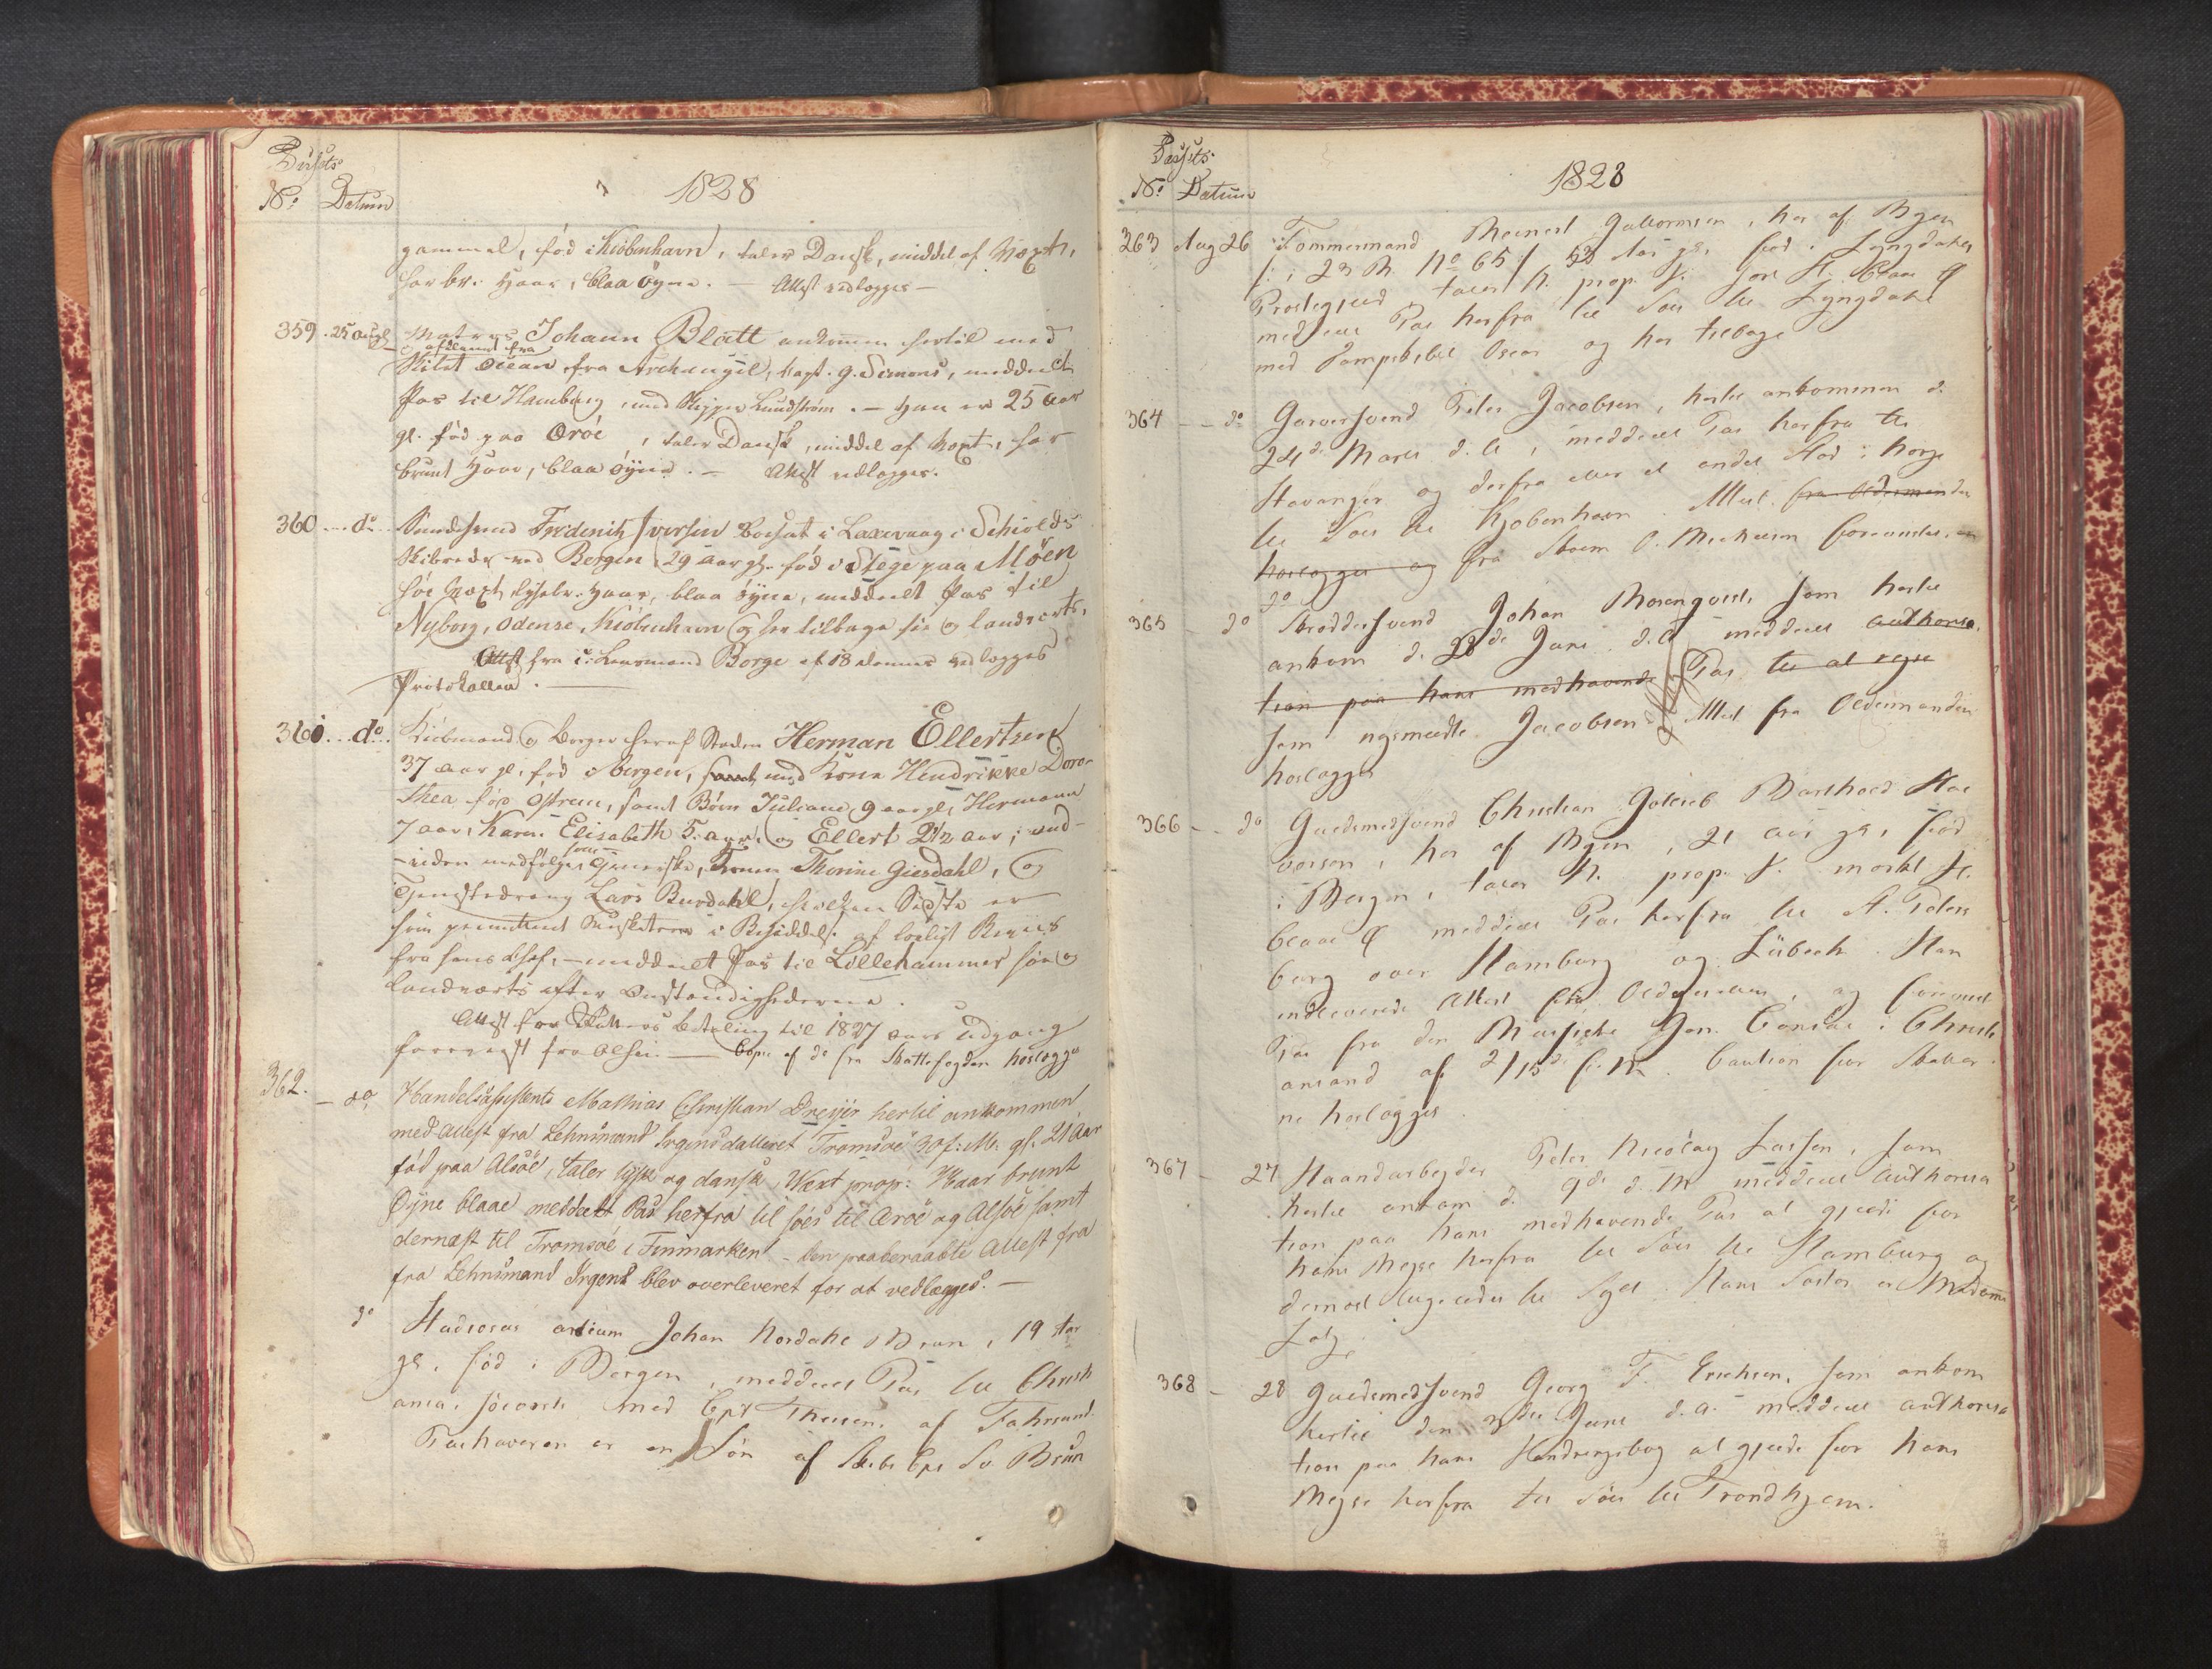 Passets
No. Datum 1828
gammel, fød i Kiøbenhavn, taler Dansk, middel af Væxt,
har br. Haar, blaa Øyne. — Attest vedlegges —
359. 25 Augt. Matros Johann Blatt ankommen hertil med
og afskediget fra
Skibet Ocean fra Archangel, Capt. G. Simons, meddeelt
Pas til Hamburg med Skipper Lundstrøm. — Han er 25 Aar
gl. fød paa Æröe, taler Dansk, middel af Væxt, har
brunt Haar, blaa Øyne. — Attest vedlegges.
360 — do. Svendsvend Friderich Iversen Bosat i Laxevaag i Schiolds
Skibrede ved Bergen 29 Aar gl. fød i Stege paa Möen
höi Væxt, lysebr. Haar, blaa Øyne, meddeelt Pas til
Nyborg, Odense, Kiöbenhavn og her tilbage søe og landverts,
Attest fra Leensmand Borge af 18 dennes vedlegges
Protokollen. —
361 — do. Kiøbmand og Borger her af Staden Herman Ellertsen
37 Aar gl. fød i Bergen, samt med Kone Hendrikke Doro-
thea fød Ostrem, samt Børn Juliane 9 aar gl, Hermann
7 aar, Karen Elisabeth 5 aar, og Ellert 2 1/2 aar; end-
som
-viden medfølger Tjeneste, Thorine Giesdahl, og
Tjenestedreng Lars Burdahl, hvilken Sidste er
som permitteret Musketeer i Besiddelse af lovligt Beviis
fra hans Chef, — meddeelt Pas til Lillehammer søe og
Landverts efter Omstændighederne.
Attest for Skatters betaling til 1827 aars Udgang
foreviist fra Olsen. — Copie af do fra Skattefogden hoslegges
362. — do. Handelsassistents Mathias Christian Dreyer hertil ankommen
med Attest fra Lehnsmand Irgens datteret Tromsøe 30 f: M: gl. 21 Aar
fød paa Alsöe, taler tysk og dansk, Wæxt prop: Haar brunt
Øjne blaae meddeelt Pas herfra til søes til Æroe og Alsöe samt
dernæst til Tromsöe i Finmarken — den paaberaabte Attest fra
fra Lehnsmand Irgens blev overleveret for at vedlægges. —
do Studiosus artium Johan Nordahl Brun, 19 Aar
gl. fød i Bergen, meddeelt Pas til Christi
ania, søeverts med Cpt Thesen af Fahrsund.
Pashaveren er en Søn af Skibs Cpt Sr. Brun
Passets
No. Datum 1828
363 Aug 26 Tømmermand Meinert Gutormsen, her af Byen
f: i 23 R. No 65 / 53 Aar gl, fød i Lyngdahls
Prostegield, taler N. prop. V. sort H. blaa Ø
meddeelt Pas herfra til Søes til Lyngdahl
med Dampskibet Oscar og her tilbage
364 — do Garversvend Peder Jacobsen, hertil ankommen d.
24de Marts d. A, meddeelt Pas herfra til
Stavanger og derfra eller et andet Sted i Norge
til Søes til Kjøbenhavn. Attest fra Oldermanden
hoslegges og fra Skom O. Michelsen forevistes.
365 — do Skrædersvend Johan Rosenqvist, som hertil
ankom d. 28de Juni d. A meddeelt authorisa
tion paa hans medhavende Pas til at rejse
som nysmeldte Jacobsen. Attest fra Oldermanden
hoslegges
366 — do Guldsmedsvend Christian Gotlieb Barthold Hal
vorsen, her af Byen, 21 Aar gl, fød
i Bergen, taler N. prop. V. mørkt H.
blaae Ø meddeelt Pas herfra til St. Peters
borg over Hamburg og Lübeck. Han
indleverede Attest fra Oldermanden, og foreviist
Pas fra den Russiske Gen. Consul i Christi
ansand af 2/15de f. M. Caution for Skatter
ne hoslegges.
367 — 27 Haandarbejder Peder Nicolay Lassen, som
hertil ankom d. 9de d. M meddeelt Authorisa
tion paa hans medhavende Pas at gjelde for
hans Rejse herfra til Søes til Hamburg og
dernæst til Hans Søster er Madame
368 — 28 Guldsmedsvend Georg F. Erichsen, som ankom
hertil den 3de Juni d. A. meddeelt authorisa
tion paa hans Vandringsbog at gjelde for hans
Rejse herfra til Søes til Trondhjem.